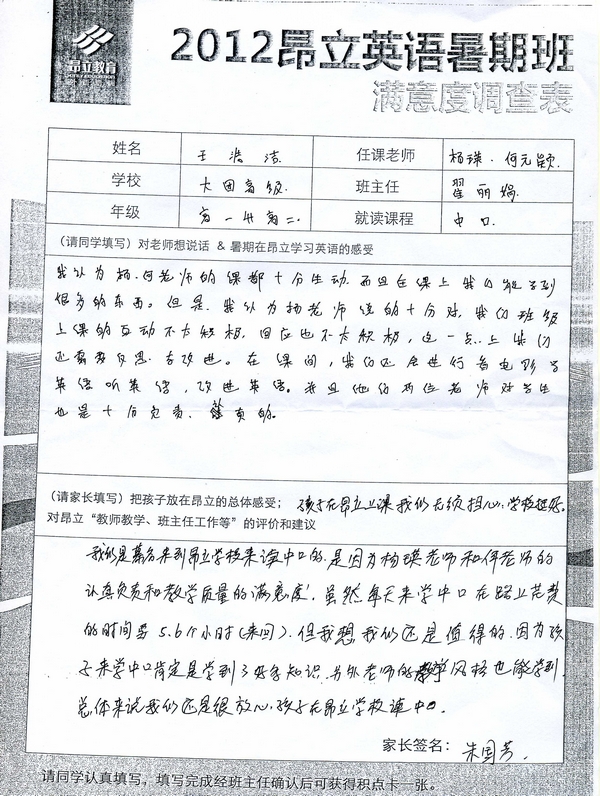 昂立教育
2012昂立英语暑期班
满意度调查表
姓名 王浩洁 任课老师 杨瑛、何元颖
学校 大团高级 班主任 翟丽娟
年级 高一升高二 就读课程 中口
(请同学填写)对老师想说话 & 暑期在昂立学习英语的感受
我认为杨、何老师的课都十分生动,而且在课上我们能学到
很多的东西。但是,我认为杨老师说的十分对,我们班级
上课的互动不太积极,回应也不太积极,这一点上我们
还需要反思,去改进。在课间,我们还会进行看电影学
英语听英语,改进英语。并且他们两位老师对学生
也是十分负责、认真的。
(请家长填写)把孩子放在昂立的总体感受; 孩子在昂立上课我们无须担心,学校挺好。
对昂立“教师教学、班主任工作等”的评价和建议
我们是慕名来到昂立学校来读中口的,是因为杨瑛老师和何老师的
认真负责和教学质量的满意度,虽然每天来学中口在路上花费
的时间要5.6个小时(来回),但我想我们还是值得的,因为孩
子来学中口肯定是学到了好多知识,另外老师的教学风格也能学到,
总体来说我们还是很放心孩子在昂立学校读中口。
家长签名: 朱国芳.
请同学认真填写,填写完成经班主任确认后可获得积点卡一张。